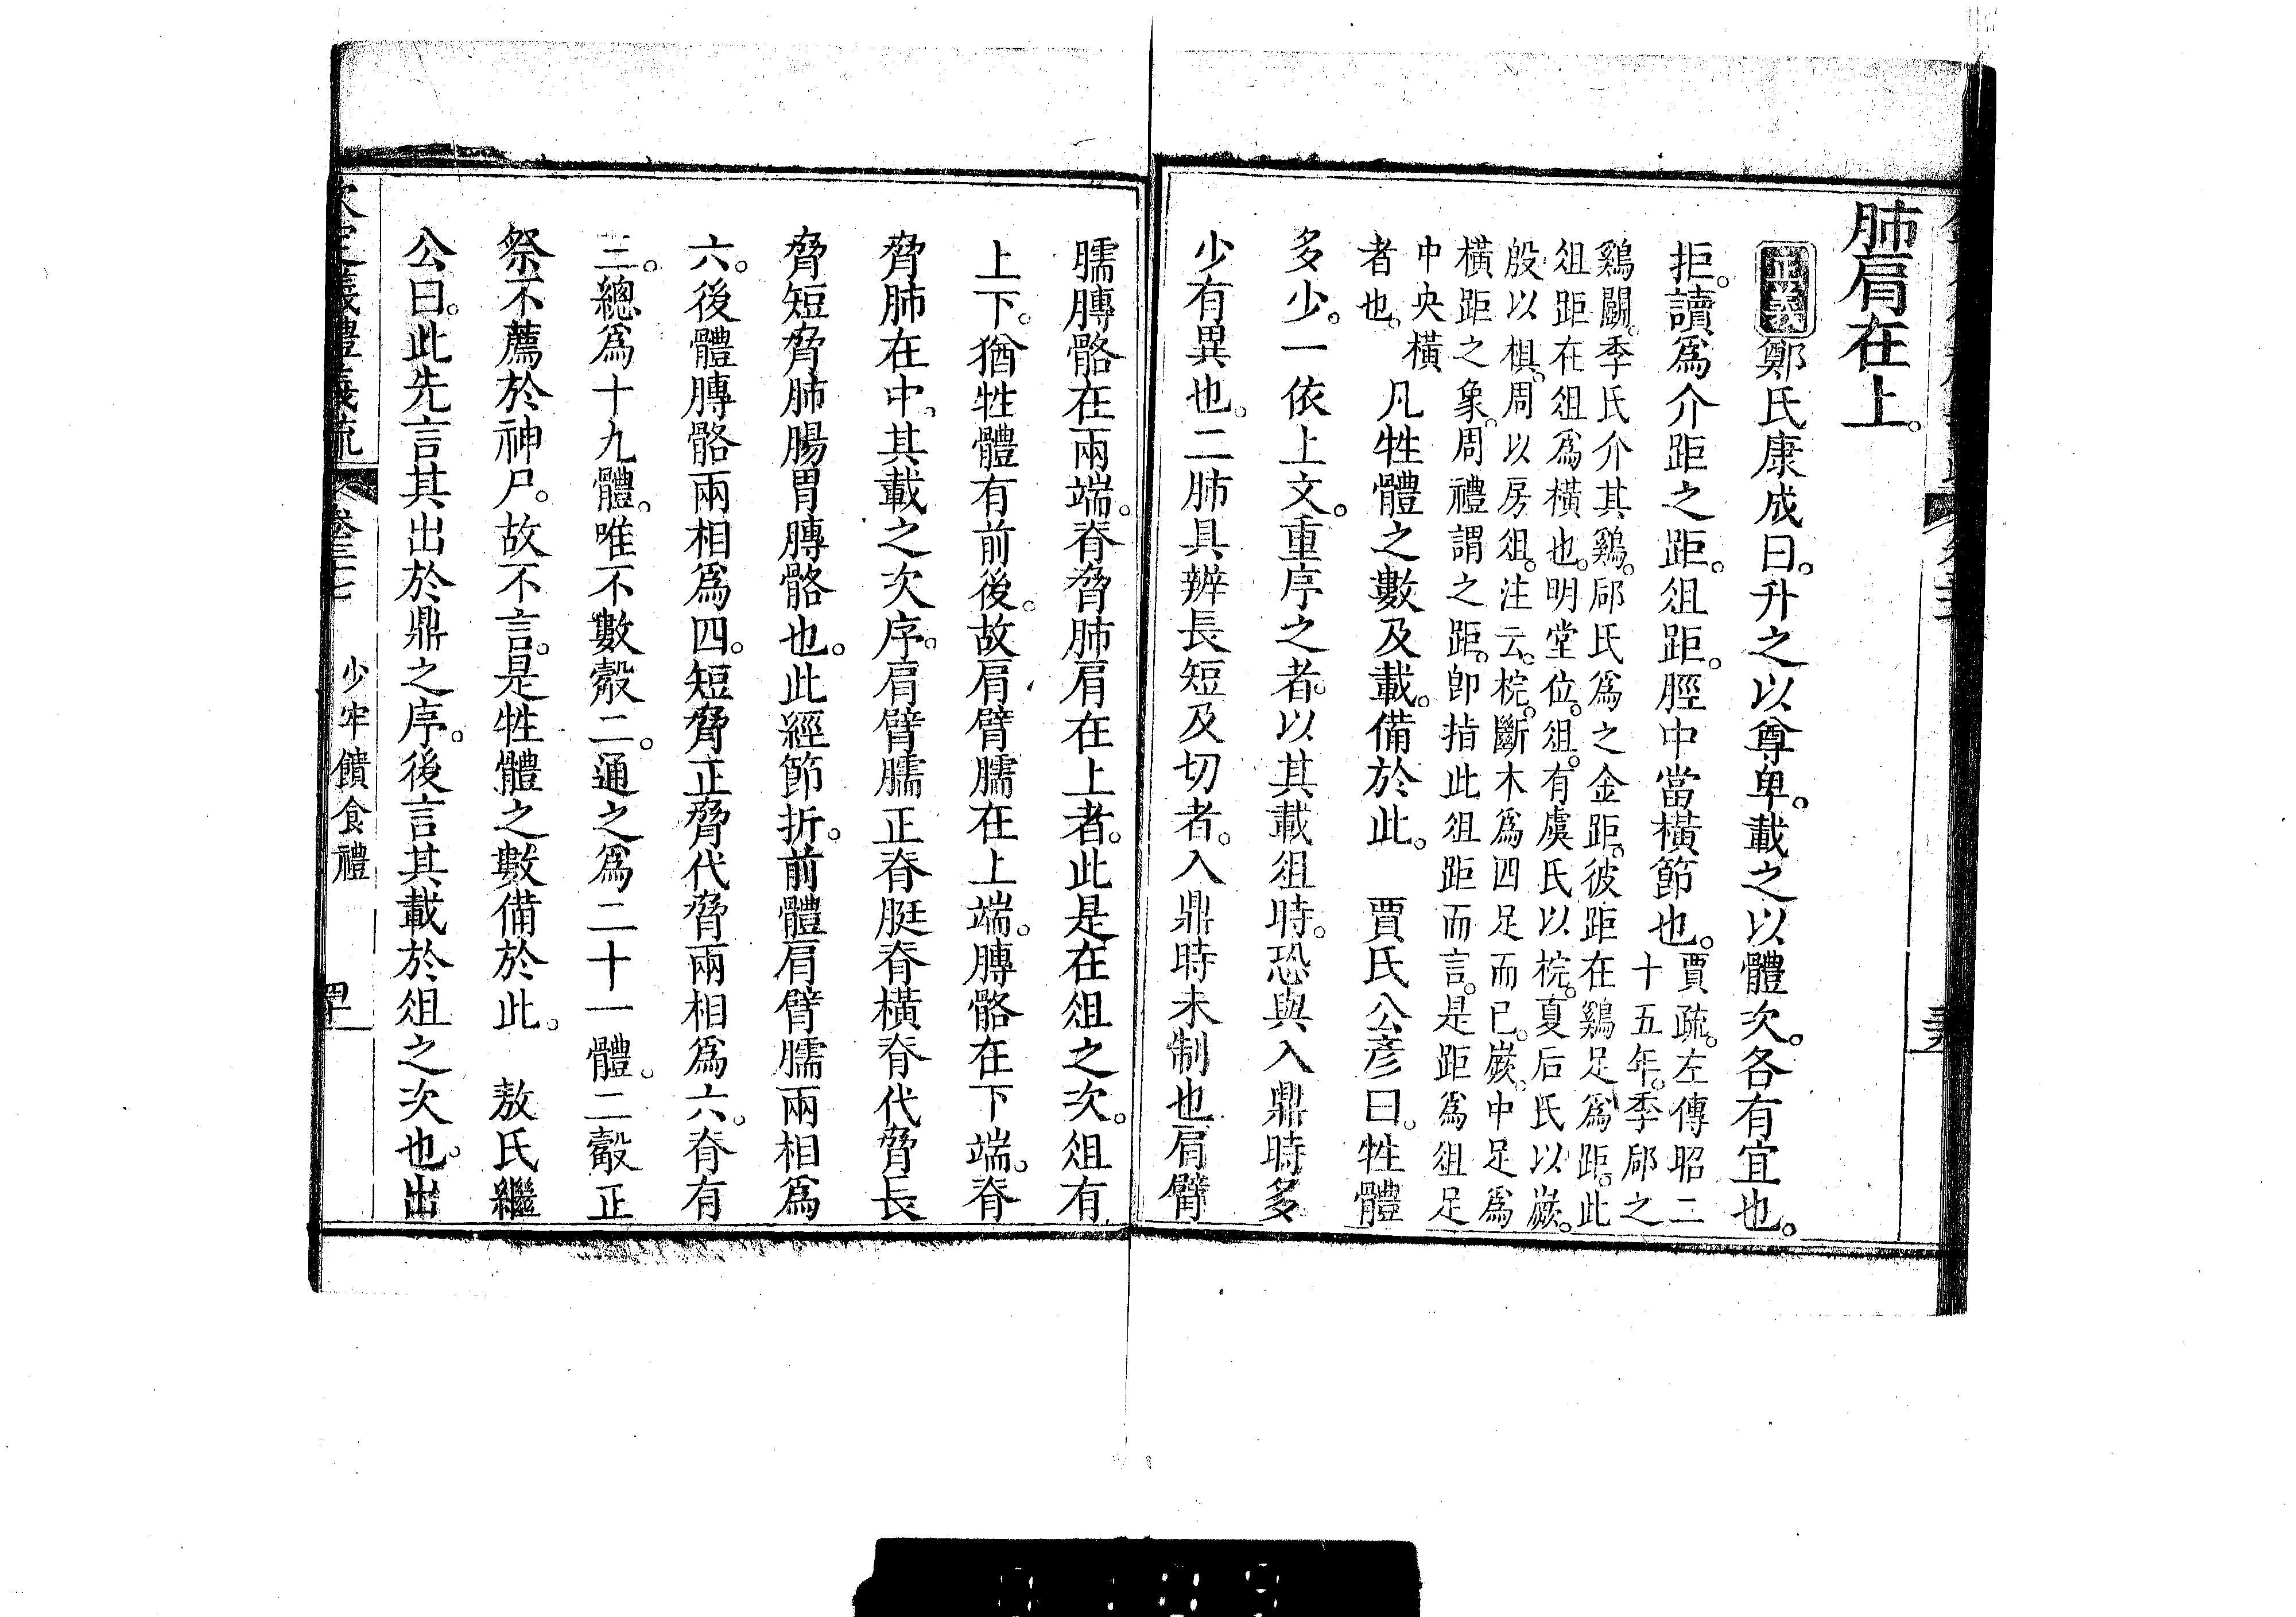 肺肩在上。
正義鄭氏康成曰。升之以尊卑。載之以體次。各有宜也。
拒。讀爲介距之距。俎距。脛中當橫節也。賈疏。左傳昭二
十五年。季郈之
鷄鬬。季氏介其鷄。郈氏爲之金距。彼距在鷄足爲距。此
俎距在俎爲橫也。明堂位。俎。有虞氏以梡。夏后氏以嶡。
殷以椇。周以房俎。注云。梡。斷木爲四足而已。嶡。中足爲
橫距之象。周禮謂之距。卽指此俎距而言。是距爲俎足
中央橫
者也。 凡牲體之數及載。備於此。 賈氏公彥曰。牲體
多少。一依上文。重序之者。以其載俎時。恐與入鼎時多
少有異也。二肺具辨長短及切者。入鼎時未制也肩臂
臑膊骼在兩端。脊脅肺肩在上者。此是在俎之次。俎有
上下。猶牲體有前後。故肩臂臑在上端。膊骼在下端。脊
脅肺在中。其載之次序。肩臂臑正脊脡脊橫脊代脅長
脅短脅肺腸胃膊骼也。此經節折。前體肩臂臑兩相爲
六。後體膊骼兩相爲四。短脅正脅代脅兩相爲六。脊有
三。總爲十九體。唯不數觳二。通之爲二十一體。二觳正
祭不薦於神尸。故不言。是牲體之數備於此。 敖氏繼
公曰。此先言其出於鼎之序。後言其載於俎之次也。出
欽定儀禮義疏 卷三十七 少牢饋食禮 四十